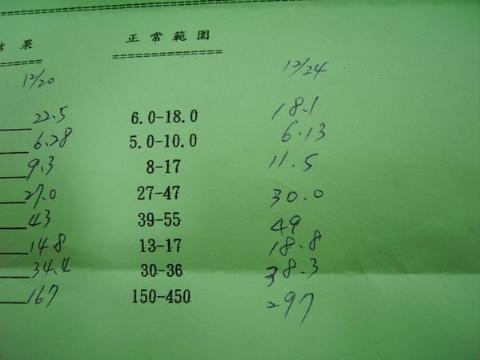 結果 正常範圍
12/20 12/24
22.5 6.0-18.0 18.1
6.28 5.0-10.0 6.13
9.3 8-17 11.5
27.0 27-47 30.0
43 39-55 49
14.8 13-17 18.8
34.4 30-36 38.3
167 150-450 297